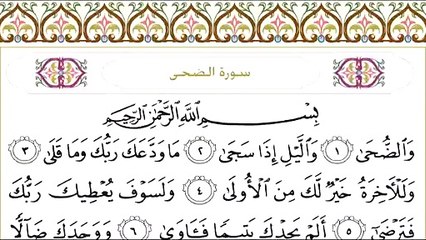 سورة الضحى
بِسْمِ اللَّهِ الرَّحْمَٰنِ الرَّحِيمِ
وَالضُّحَىٰ ١ وَالَّيْلِ إِذَا سَجَىٰ ٢ مَا وَدَّعَكَ رَبُّكَ وَمَا قَلَىٰ ٣
وَلَلْآخِرَةُ خَيْرٌ لَّكَ مِنَ الْأُولَىٰ ٤ وَلَسَوْفَ يُعْطِيكَ رَبُّكَ
فَتَرْضَىٰ ٥ أَلَمْ يَجِدْكَ يَتِيمًا فَـَٔاوَىٰ ٦ وَوَجَدَكَ ضَالًّا